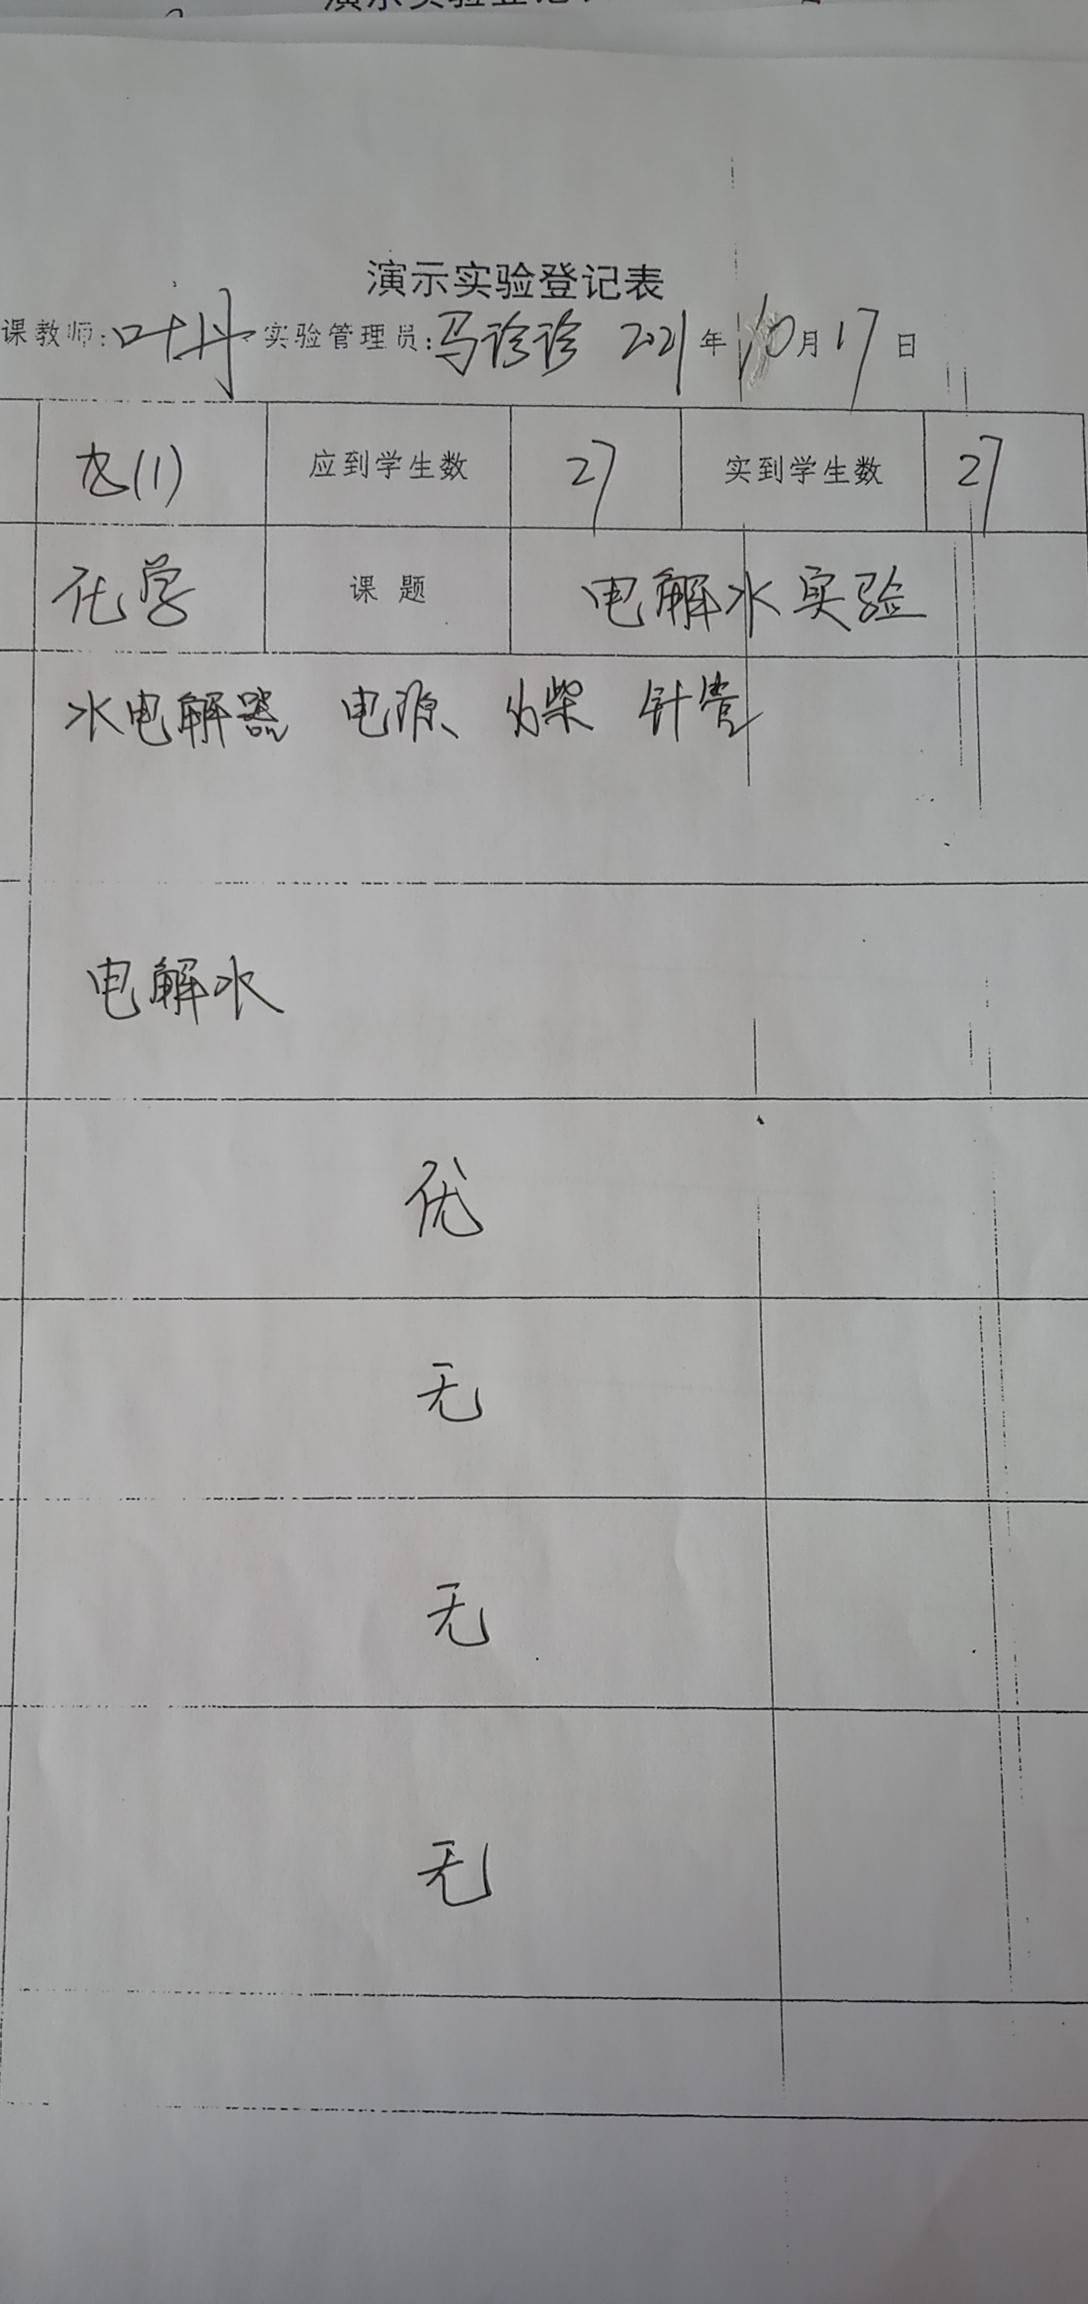 演示实验登记表
课教师:叶丹 实验管理员:马诊诊 2021年10月17日
九(1) 应到学生数 27 实到学生数 27
化学 课题 电解水实验
水电解器 电源 火柴 针管
电解水
优
无
无
无